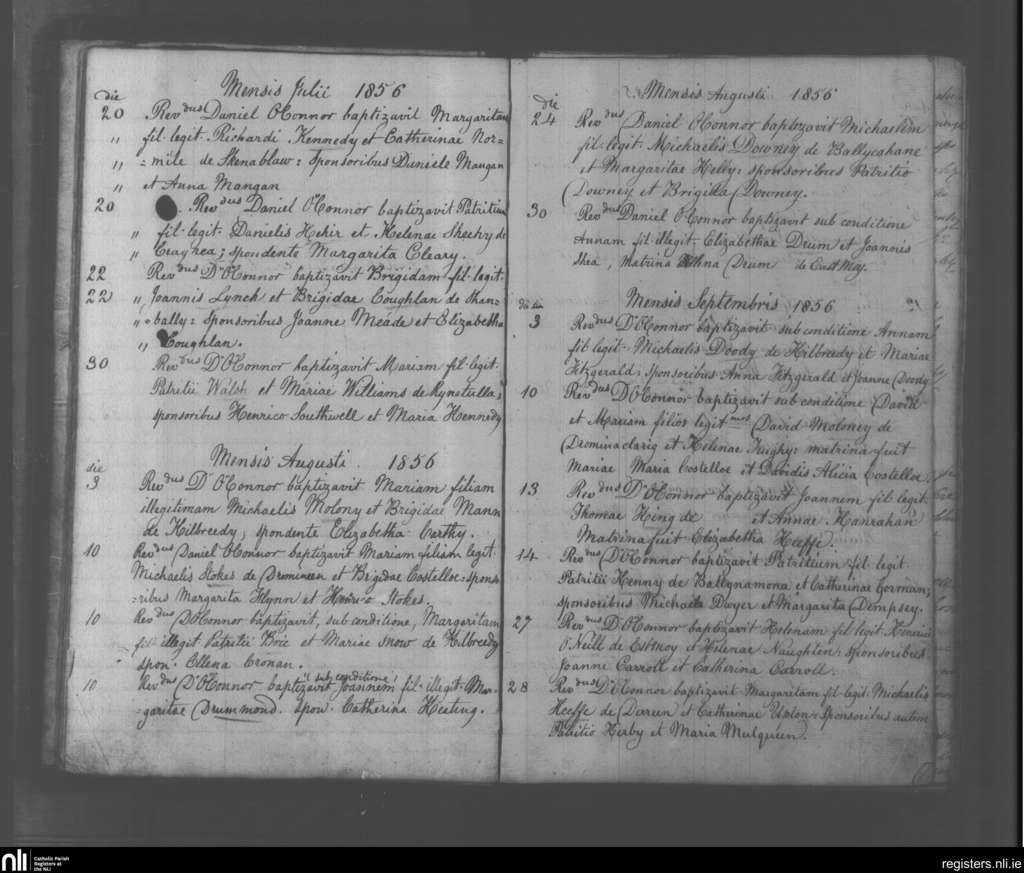 Mensis Julii 1856
die
20 Revdus Daniel O'Connor baptizavit Margaritam
„ fil. legit. Richardi Kennedy et Catherinae Nor=
„ =mile de Skenablaw: sponsoribus Daniele Mangan
„ et Anna Mangan
20 Revdus Daniel O'Connor baptizavit Patritium
„ fil. legit. Danielis Hekir et Helenae Sheehy de
„ ; spondente Margarita Cleary.
22 Revdus D O'Connor baptizavit Brigidam fil. legit.
22 „ Joannis Lynch et Brigidae Coughlan de Shan=
„ =bally: sponsoribus Joanne Meade et Elizabetha
„ Coughlan.
30 Revdus D O'Connor baptizavit Mariam fil. legit.
Patritii Walsh et Mariae Williams de
sponsoribus Henrico Southwell et Maria Kennedy
Mensis Augusti. 1856
die
3 Revdus D O'Connor baptizavit Mariam filiam
illegitimam Michaelis Molony et Brigidae Mann
de Kilbreedy, spondente Elizabetha Carthy.
10 Revdus Daniel O'Connor baptizavit Mariam filiam legit.
Michaelis Stokes de Dromineen et Brigidae Costelloe: spons=
=ribus Margarita Flynn et Henrico Stokes.
10 Revdus D O'Connor baptizavit, sub conditione, Margaritam
fil. illegit Patritii Boic et Mariae Snow de Kilbreedy
spon. Ellena Cronan.
"sub conditione"
10 Revdus D O'Connor baptizavit Joannem fil. illegit. Mar=
=garitae Drummond. spon. Catherina Keeting.
Mensis Augusti 1856
die
24 Revdus Daniel O'Connor baptizavit Michaelem
fil. legit. Michaelis Downey de Ballycahane
et Margaritae Kelly: sponsoribus Patritio
Downey et Brigitta Downey.
30 Revdus Daniel O'Connor baptizavit sub conditione
Annam fil. illegit. Elizabethae Drum et Joannis
Shea, Matrina Anna Drum de
Mensis Septembris 1856
die
3 Revdus D O'Connor baptizavit sub conditione Annam
fil legit. Michaelis Doody de Kilbreedy et Mariae
Fitzgerald: sponsoribus Anna Fitzgerald et Joanne Doody
10 Revdus D O'Connor baptizavit sub conditione David
et Mariam filios legitmos David Moloney de
Drominaclarig et Helenae Hughy: matrina fuit
Mariae Maria Costelloe et Davidis Alicia Costelloe.
13 Revdus D O'Connor baptizavit Joannem fil legit.
Thomae King de et Annae Hanrahan
Matrina fuit Elizabetha Keeffe.
14 Revdus D O'Connor baptizavit Patritium fil. legit.
Patritii Henny de Ballynamona et Catherinae Gorman;
sponsoribus Michaele Dwyer et Margarita Dempsey.
27 Revdus D O'Connor baptizavit Helenam fil legit. Henrici
O'Neill de et Helenae Naughten: sponsoribus
Joanne Carroll et Catherina Carroll.
28 Revdus D O'Connor baptizavit Margaritam fil legit. Michaelis
Keeffe de Dareen et Catherinae: sponsoribus autem
Patritio Herby et Maria Mulqueen.
nli Catholic Parish
Registers at
the NLI
registers.nli.ie